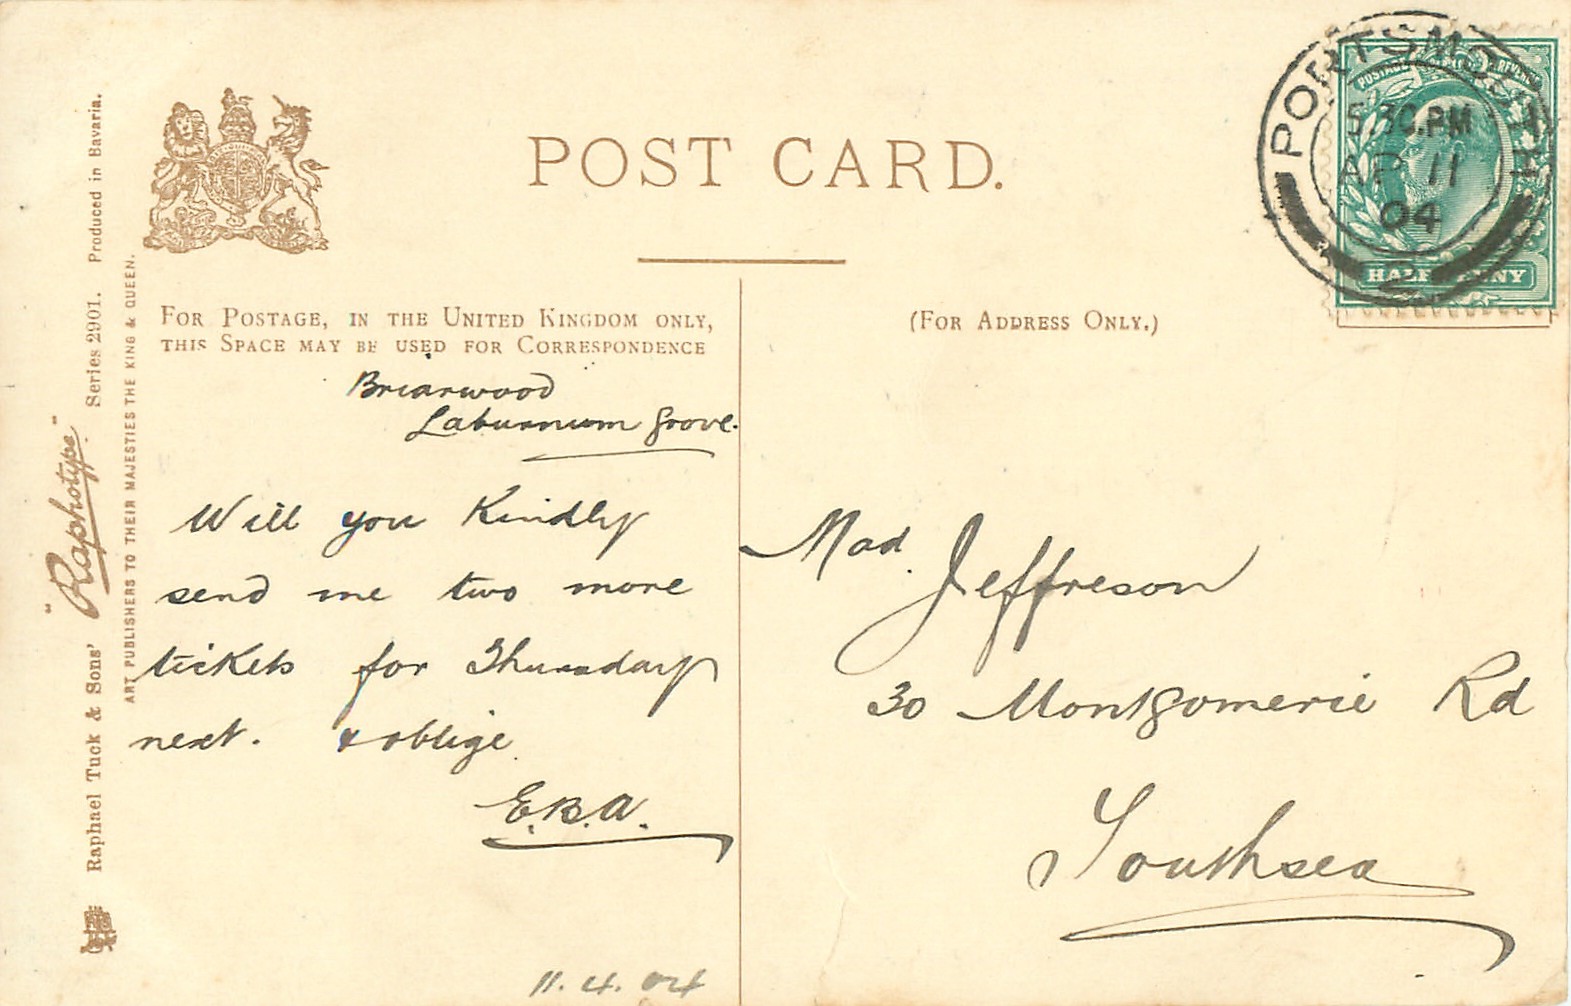 POST CARD.
FOR POSTAGE, IN THE UNITED KINGDOM ONLY,
THIS SPACE MAY BE USED FOR CORRESPONDENCE
(FOR ADDRESS ONLY.)
Briarwood
Laburnum Grove.
Will you kindly
send me two more
tickets for Thursday
next. & oblige
E.B.A.
11.4.04
Mad. Jeffreson
30 Montgomerie Rd
Southsea
PORTSMOUTH
5 30.PM
AP 11
04
2
POSTAGE REVENUE
HALFPENNY
Raphael Tuck & Sons' "Raphotype" Series 2901. Produced in Bavaria.
ART PUBLISHERS TO THEIR MAJESTIES THE KING & QUEEN.